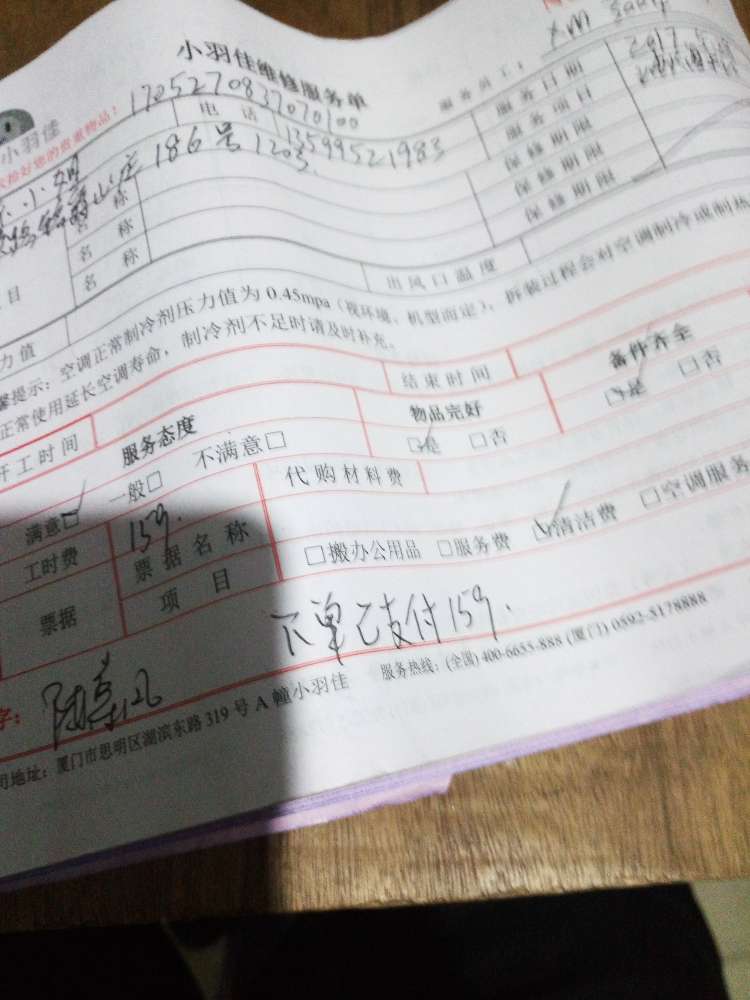 小羽佳维修服务单
小羽佳
1705270837070100
服务员工：
电话 13599521983
服务日期 2017
服务项目
小姐
山庄186号1203
名称
保修期限
名称
保修期限
名称
保修期限
出风口温度
提示：空调正常制冷剂压力值为0.45mpa（视环境、机型而定），拆装过程会对空调制冷或制热
正常使用延长空调寿命，制冷剂不足时请及时补充。
开工时间
结束时间
服务态度
物品完好
备件齐全
满意☑ 一般□ 不满意□
☑是 □否
☑是 □否
工时费 159.
代购材料费
票据
票据名称
□搬办公用品 □服务费 ☑清洁费 □空调服务
项目
下单已支付159.
字：
司地址：厦门市思明区湖滨东路319号A幢小羽佳 服务热线：(全国) 400-6655-888 (厦门) 0592-5178888